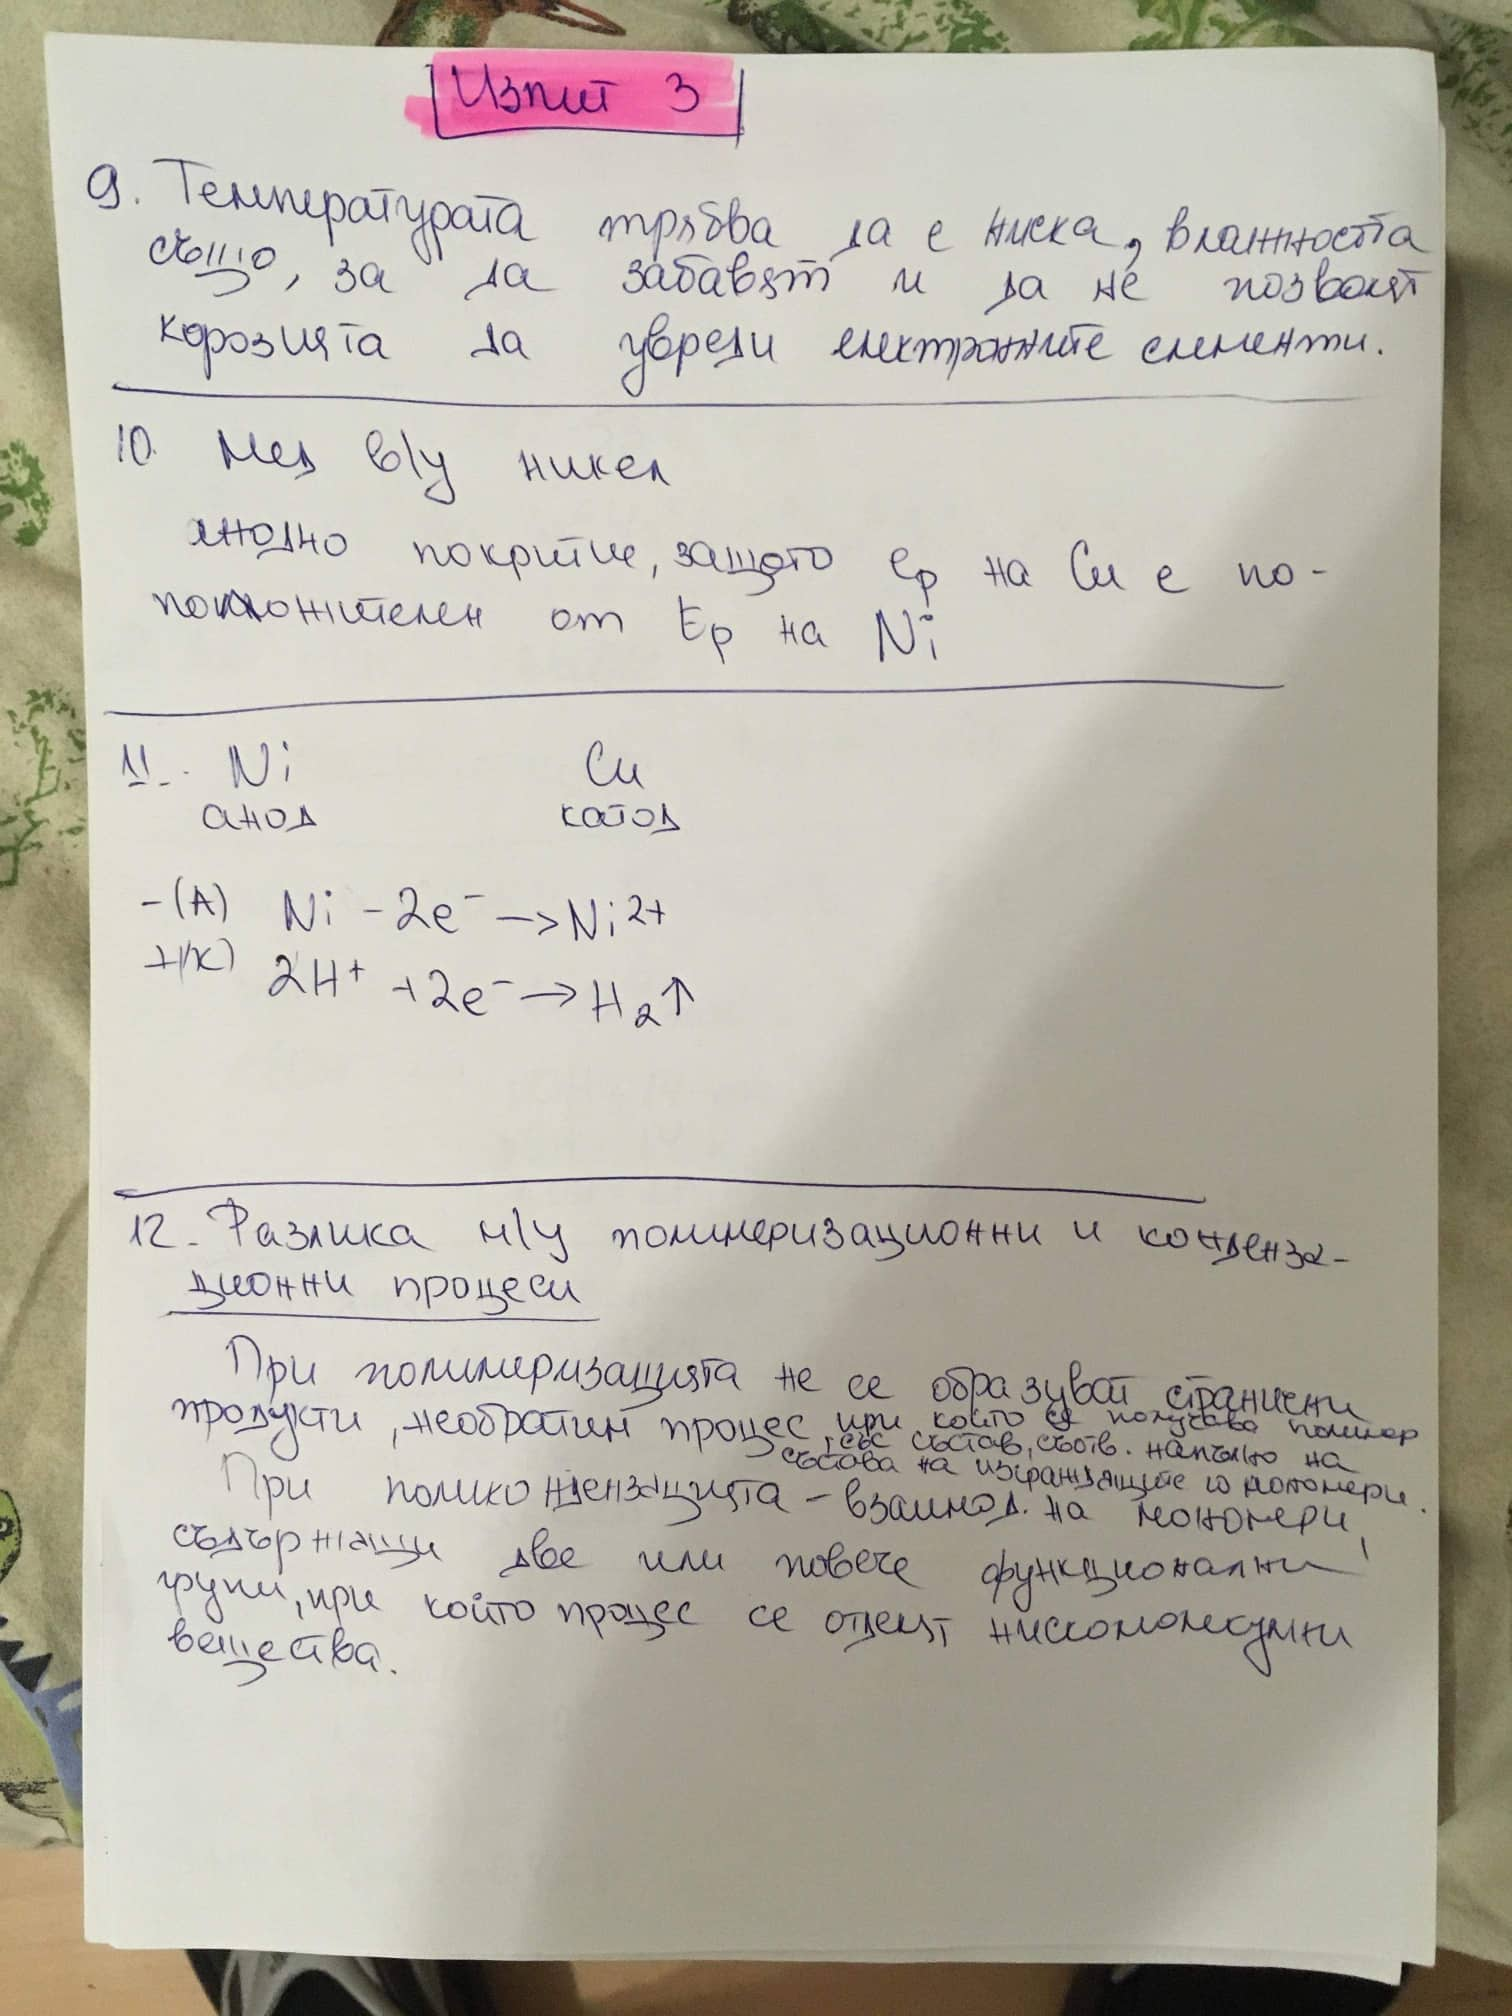 Изпит 3
9. Температурата трябва да е ниска, влажността
също, за да забавят и да не позволят
корозията да увреди електронните елементи.
10. Мед в/у никел
анодно покритие, защото Ep на Cu е по-
положителен от Ep на Ni
11. Ni Cu
анод катод
-(A) Ni - 2e⁻ → Ni²⁺
+(K) 2H⁺ + 2e⁻ → H₂↑
12. Разлика м/у полимеризационни и конденза-
ционни процеси
При полимеризацията не се образуват странични
продукти, необратим процес, при който се получава полимер
със състав, съотв. напълно на
състава на изграждащите го мономери.
При поликондензацията - взаимод. на мономери,
съдържащи две или повече функционални
групи, при който процес се отделят нискомолекулни
вещества.